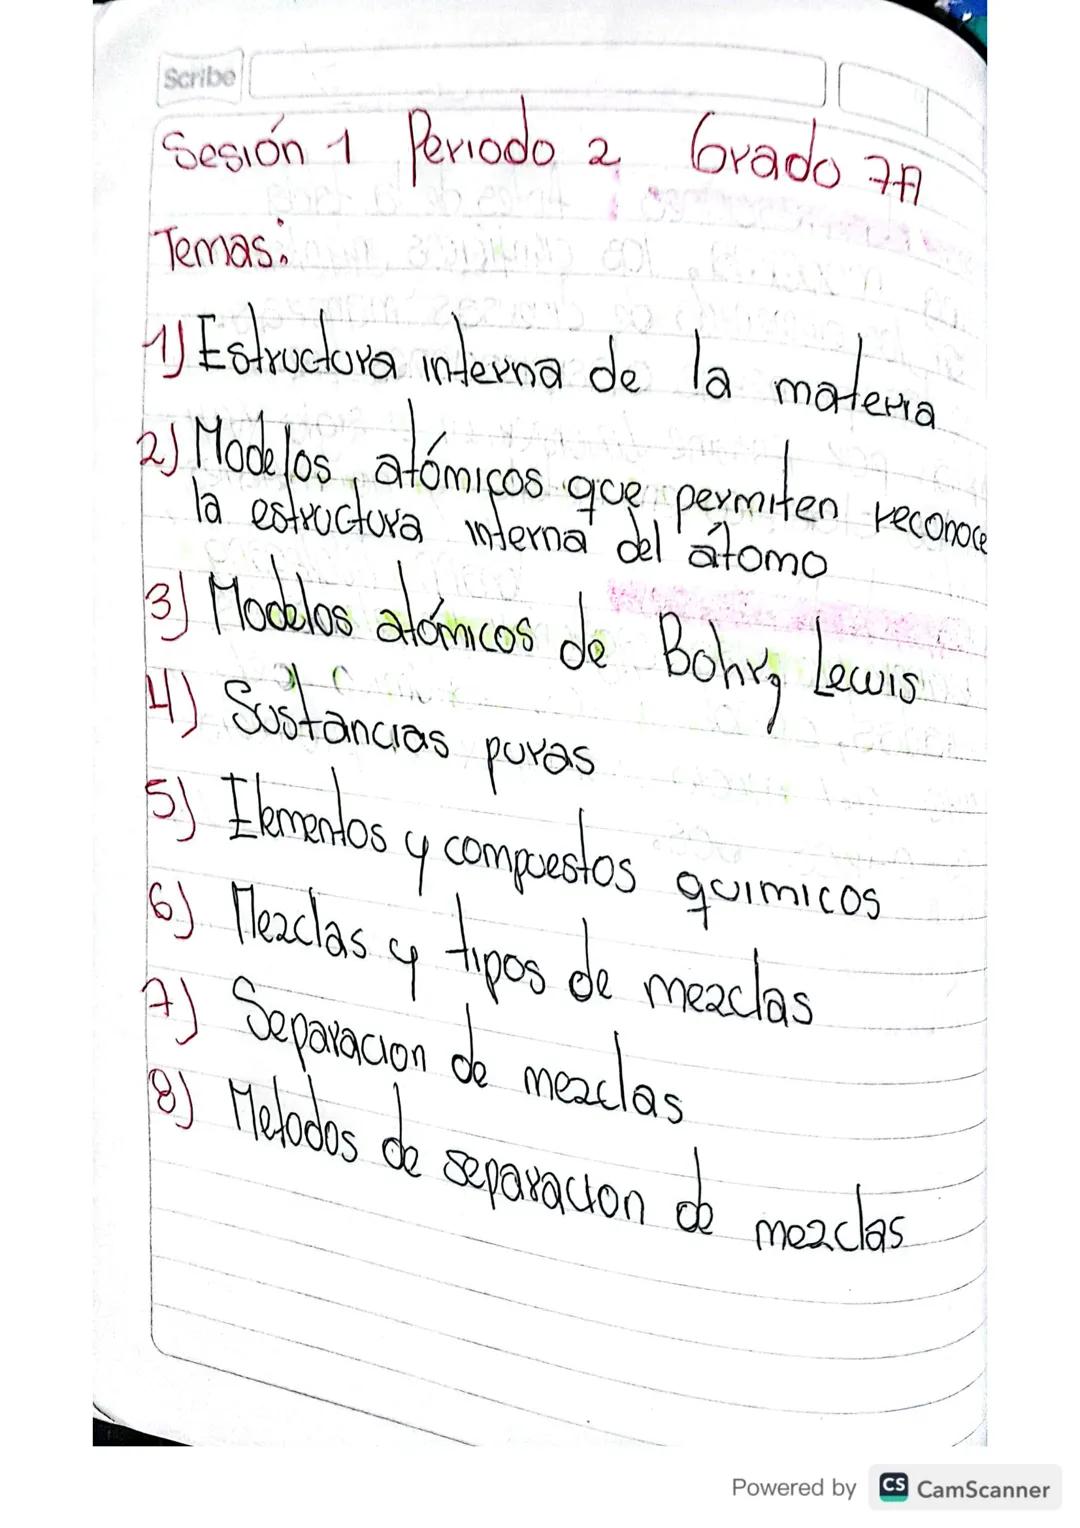 Scribe
Sesión 1 Periodo 2 Grado 7A
Temas:
1) Estructura interna de la materia
2) Modelos atómicos que permiten reconoce
la estructura interna del átomo
3) Modelos atómicos de Bohr, Lewis
4) Sustancias puras
5) Elementos y compuestos quimicos
6) Mezclas y tipos de mezclas
7) Separacion de mezclas
8) Metodos de separacion de mezclas
Powered by CS CamScanner